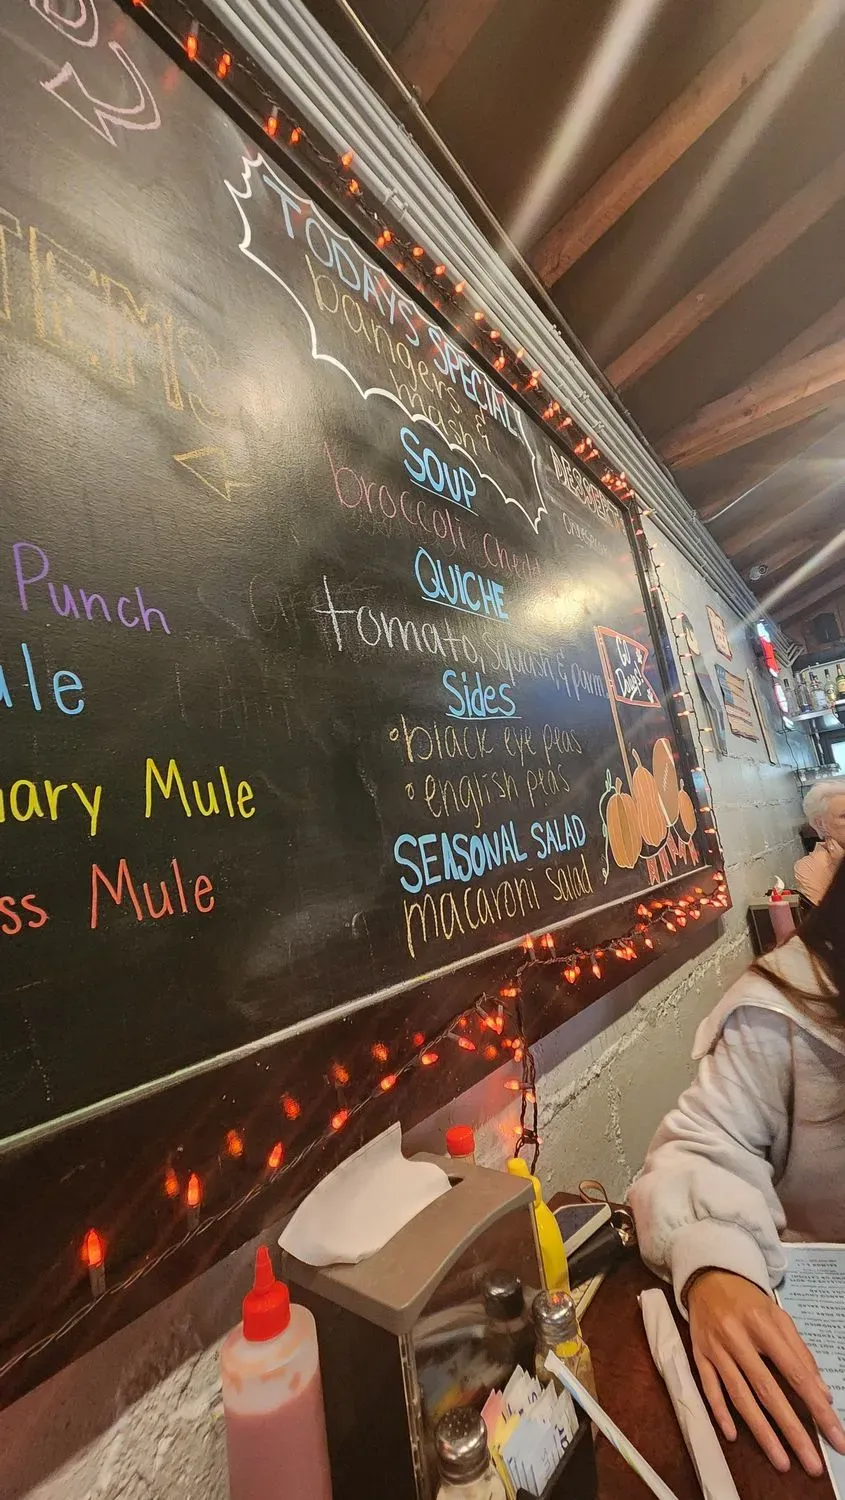 TEMS
Punch
ule
nary Mule
ss Mule
TODAYS SPECIAL!
bangers &
mash
SOUP
broccoli chedd
QUiCHE
tomato, squash, & parm
Sides
• black eye peas
• english peas
SEASONAL SALAD
macaroni salad
DESSERT
GO
Dawgs!